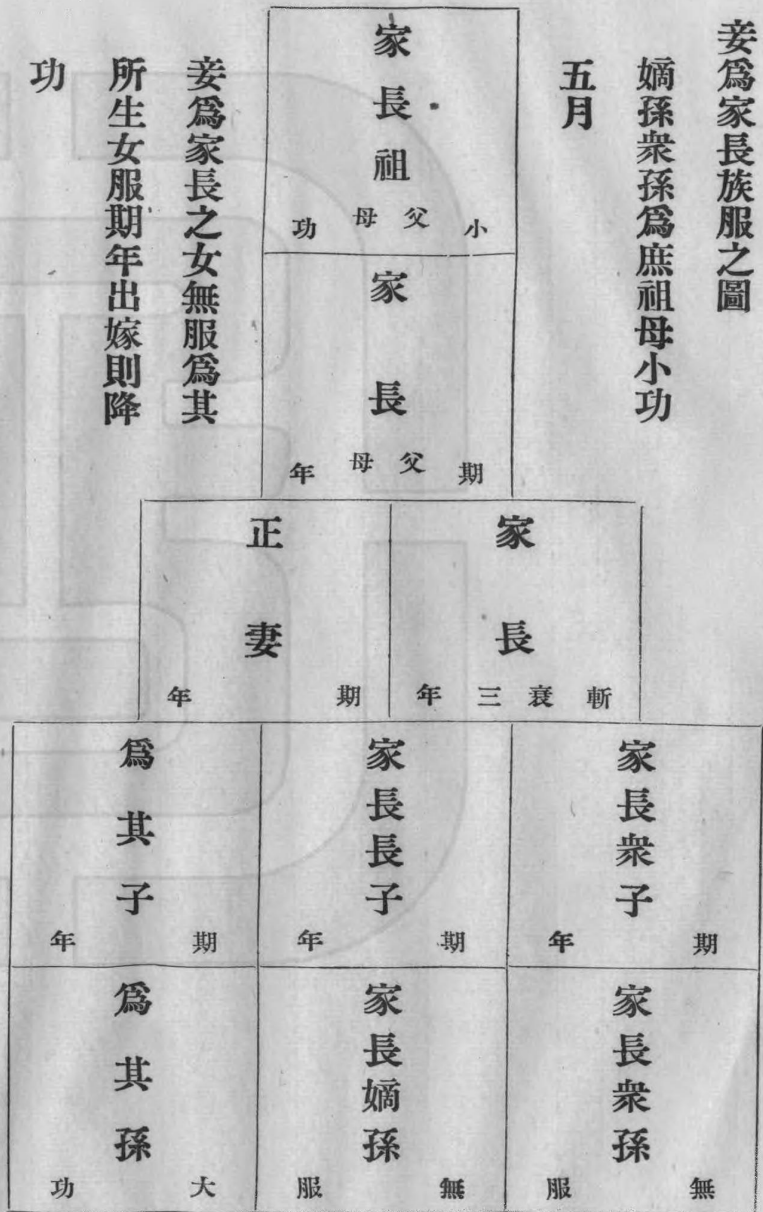 妾爲家長族服之圖
嫡孫衆孫爲庶祖母小功
五月
家長祖
小父母功
家長
期父母年
家長
斬衰三年
正妻
期年
家長衆子
期年
家長長子
期年
爲其子
期年
家長衆孫
無服
家長嫡孫
無服
爲其孫
大功
妾爲家長之女無服爲其
所生女服期年出嫁則降
功